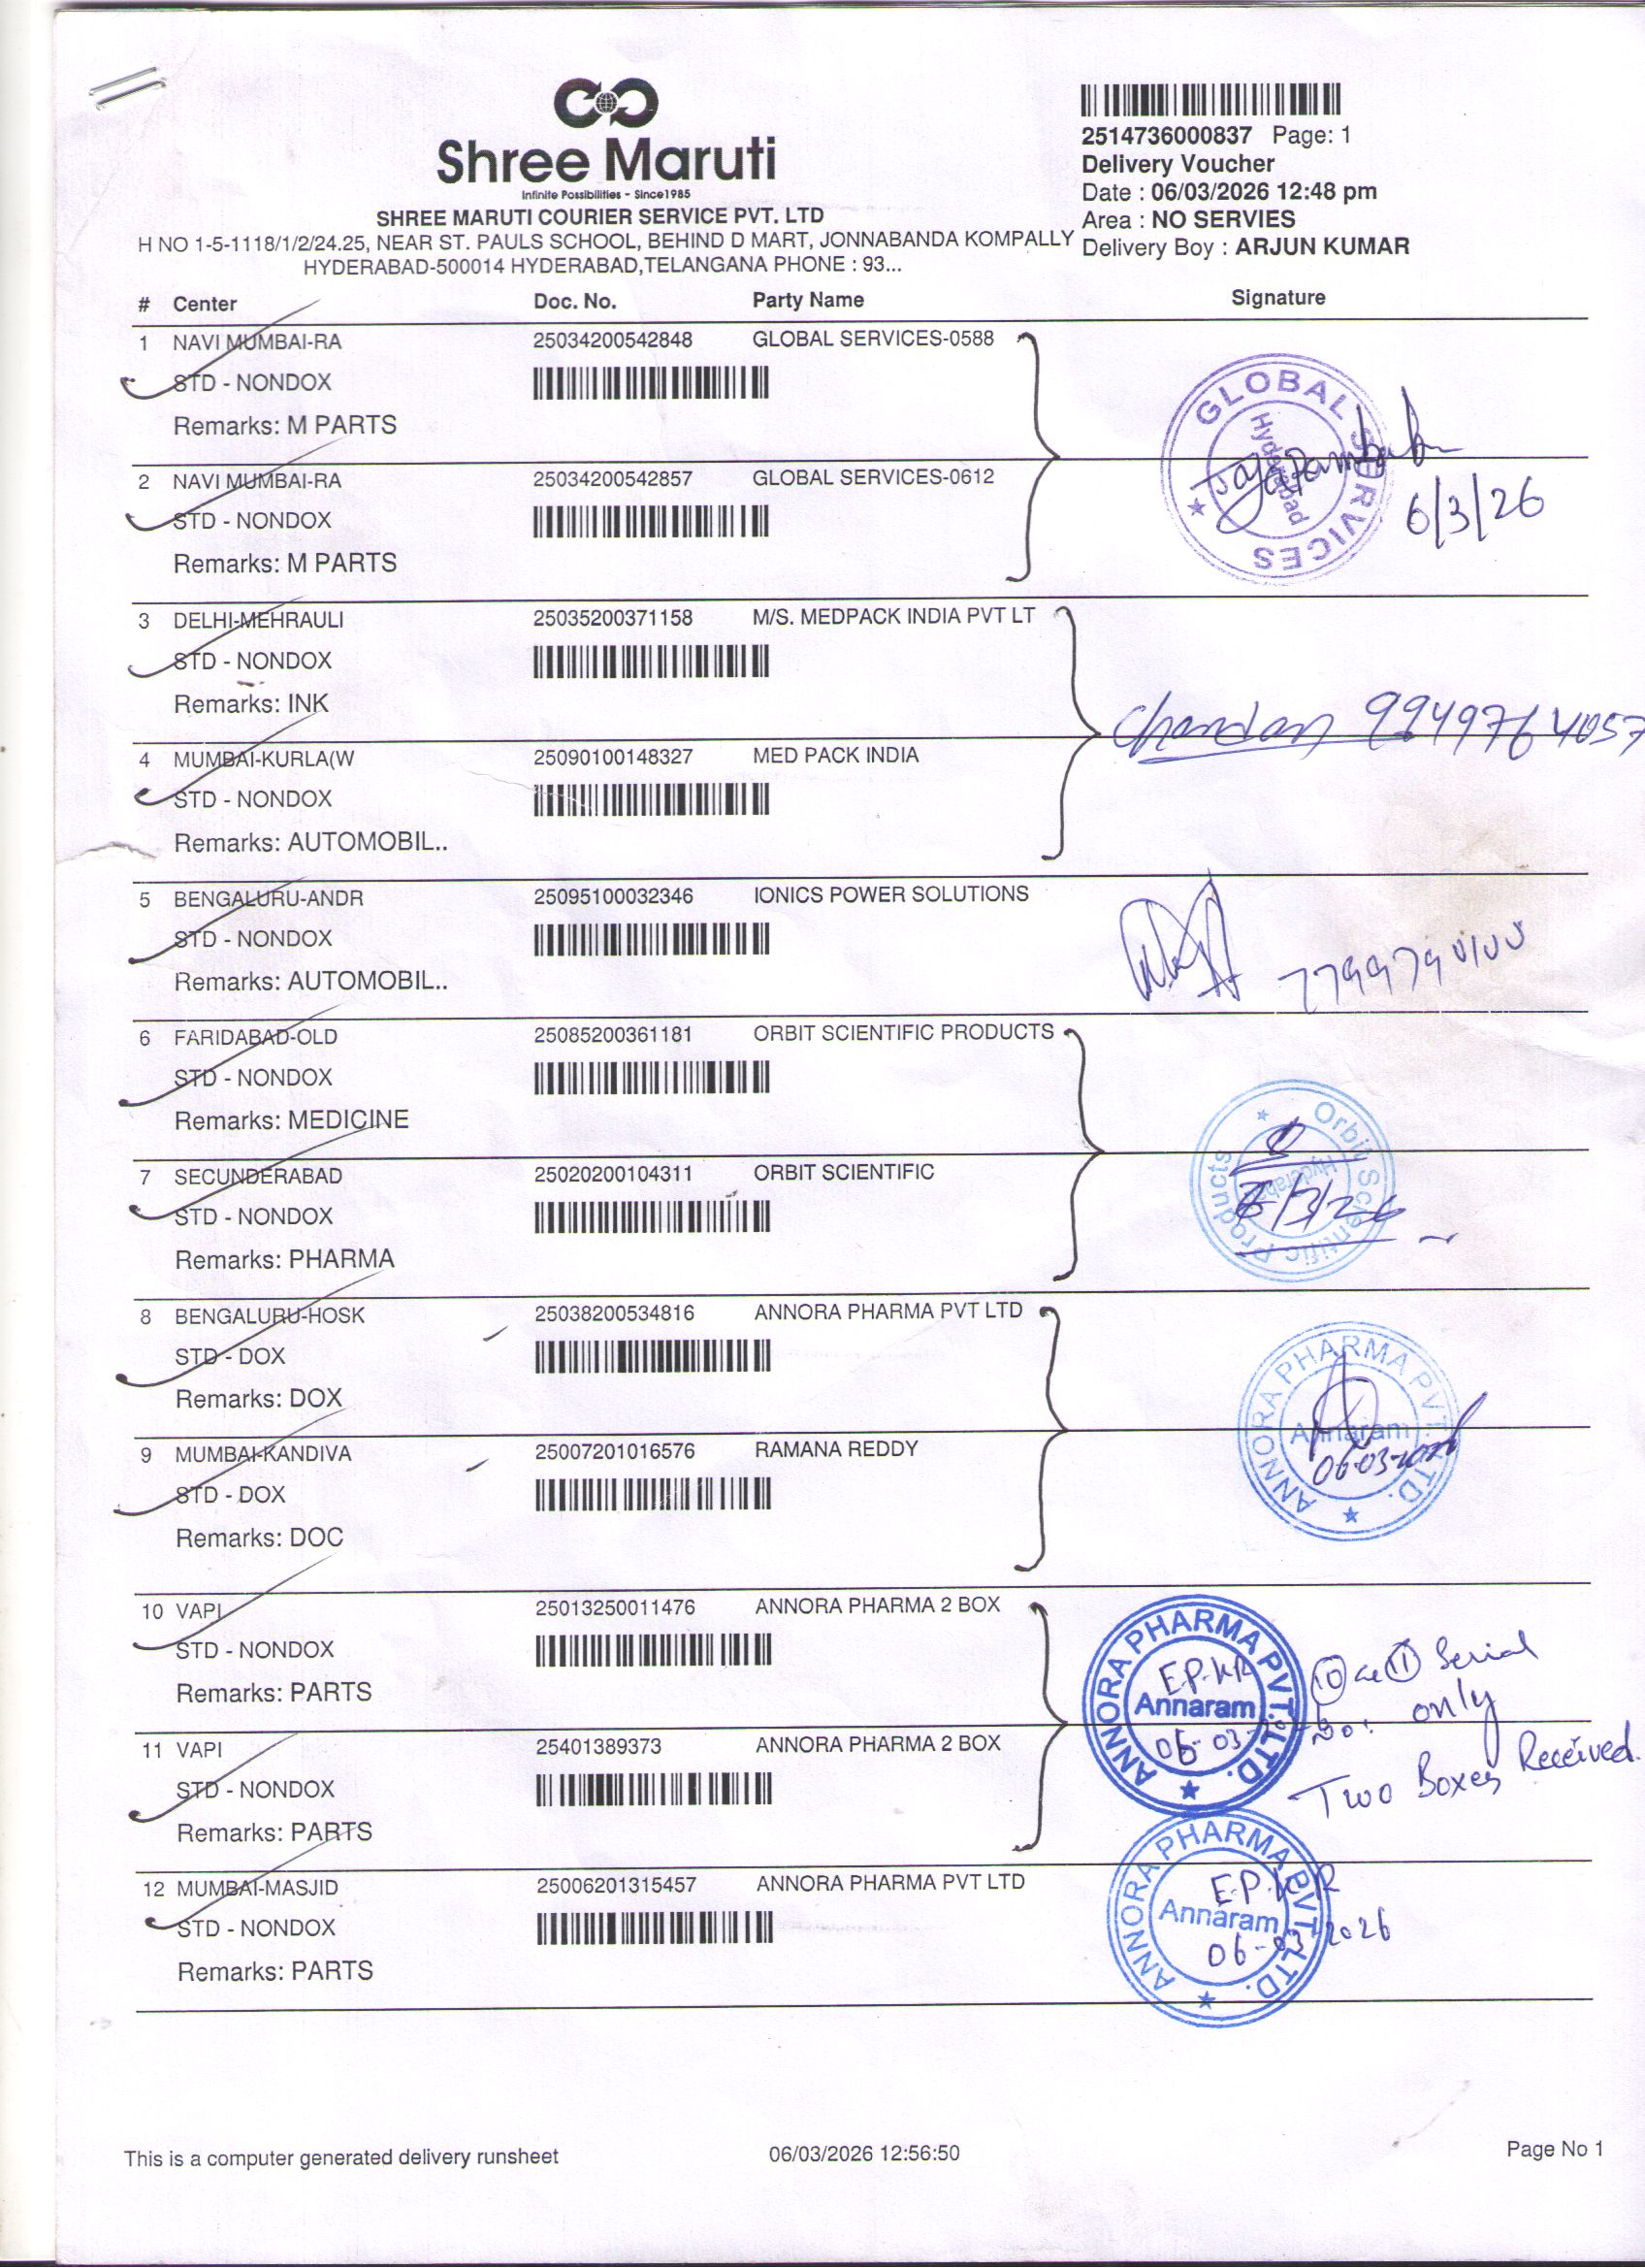 Shree Maruti
Infinite Possibilities - Since1985
SHREE MARUTI COURIER SERVICE PVT. LTD
H NO 1-5-1118/1/2/24.25, NEAR ST. PAULS SCHOOL, BEHIND D MART, JONNABANDA KOMPALLY
HYDERABAD-500014 HYDERABAD,TELANGANA PHONE : 93...
2514736000837 Page: 1
Delivery Voucher
Date : 06/03/2026 12:48 pm
Area : NO SERVIES
Delivery Boy : ARJUN KUMAR
# Center Doc. No. Party Name Signature
1 NAVI MUMBAI-RA 25034200542848 GLOBAL SERVICES-0588
STD - NONDOX
Remarks: M PARTS
GLOBAL SERVICES
Hyderabad
2 NAVI MUMBAI-RA 25034200542857 GLOBAL SERVICES-0612
STD - NONDOX
6/3/26
Remarks: M PARTS
3 DELHI-MEHRAULI 25035200371158 M/S. MEDPACK INDIA PVT LT
STD - NONDOX
Remarks: INK
Chandan
4 MUMBAI-KURLA(W 25090100148327 MED PACK INDIA
STD - NONDOX
Remarks: AUTOMOBIL..
5 BENGALURU-ANDR 25095100032346 IONICS POWER SOLUTIONS
STD - NONDOX
Remarks: AUTOMOBIL..
6 FARIDABAD-OLD 25085200361181 ORBIT SCIENTIFIC PRODUCTS
STD - NONDOX
Remarks: MEDICINE
Orbit Scientific Products
Hyderabad
7 SECUNDERABAD 25020200104311 ORBIT SCIENTIFIC
STD - NONDOX
Remarks: PHARMA
8 BENGALURU-HOSK 25038200534816 ANNORA PHARMA PVT LTD
STD - DOX
Remarks: DOX
ANNORA PHARMA PVT. LTD.
Annaram
06-03-2026
9 MUMBAI-KANDIVA 25007201016576 RAMANA REDDY
STD - DOX
Remarks: DOC
10 VAPI 25013250011476 ANNORA PHARMA 2 BOX
STD - NONDOX
Remarks: PARTS
ANNORA PHARMA PVT. LTD.
E.P.KR
Annaram
06-03-
10 11 Serial
only
Two Boxes Received.
11 VAPI 25401389373 ANNORA PHARMA 2 BOX
STD - NONDOX
Remarks: PARTS
12 MUMBAI-MASJID 25006201315457 ANNORA PHARMA PVT LTD
STD - NONDOX
Remarks: PARTS
ANNORA PHARMA PVT. LTD.
E.P.KR
Annaram
06-03-2026
This is a computer generated delivery runsheet 06/03/2026 12:56:50 Page No 1